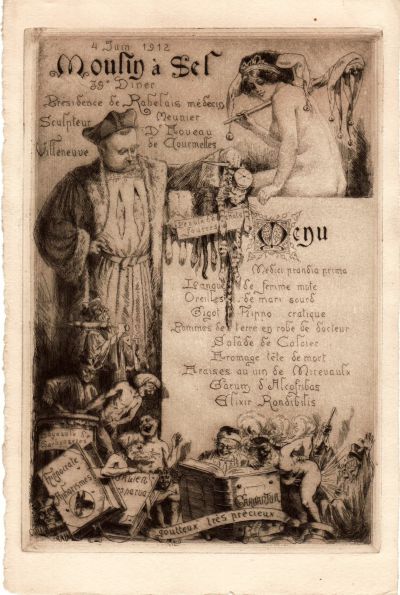 4 Juin 1912
Moulin à Sel
39e Diner
Présidence de Rabelais médecin
Sculpteur Meunier
Dr Foveau
Villeneuve de Courmelles
Menu
Medici prandia prima
Langue de femme mute
Oreilles de mari sourd
Gigot Hippo cratique
Pommes de terre en robe de docteur
Salade de Caloier
Fromage tête de mort
Fraises au vin de Mirevaulx
Garum d'Alcofribas
Elixir Rondibilis
Aphorismes
Gargantua
goutteux très précieux